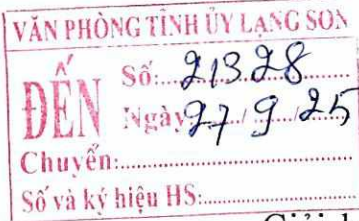 VĂN PHÒNG TỈNH ỦY LẠNG SƠN
ĐẾN
Số: 21328
Ngày 27/9/25
Chuyển:
Số và ký hiệu HS: